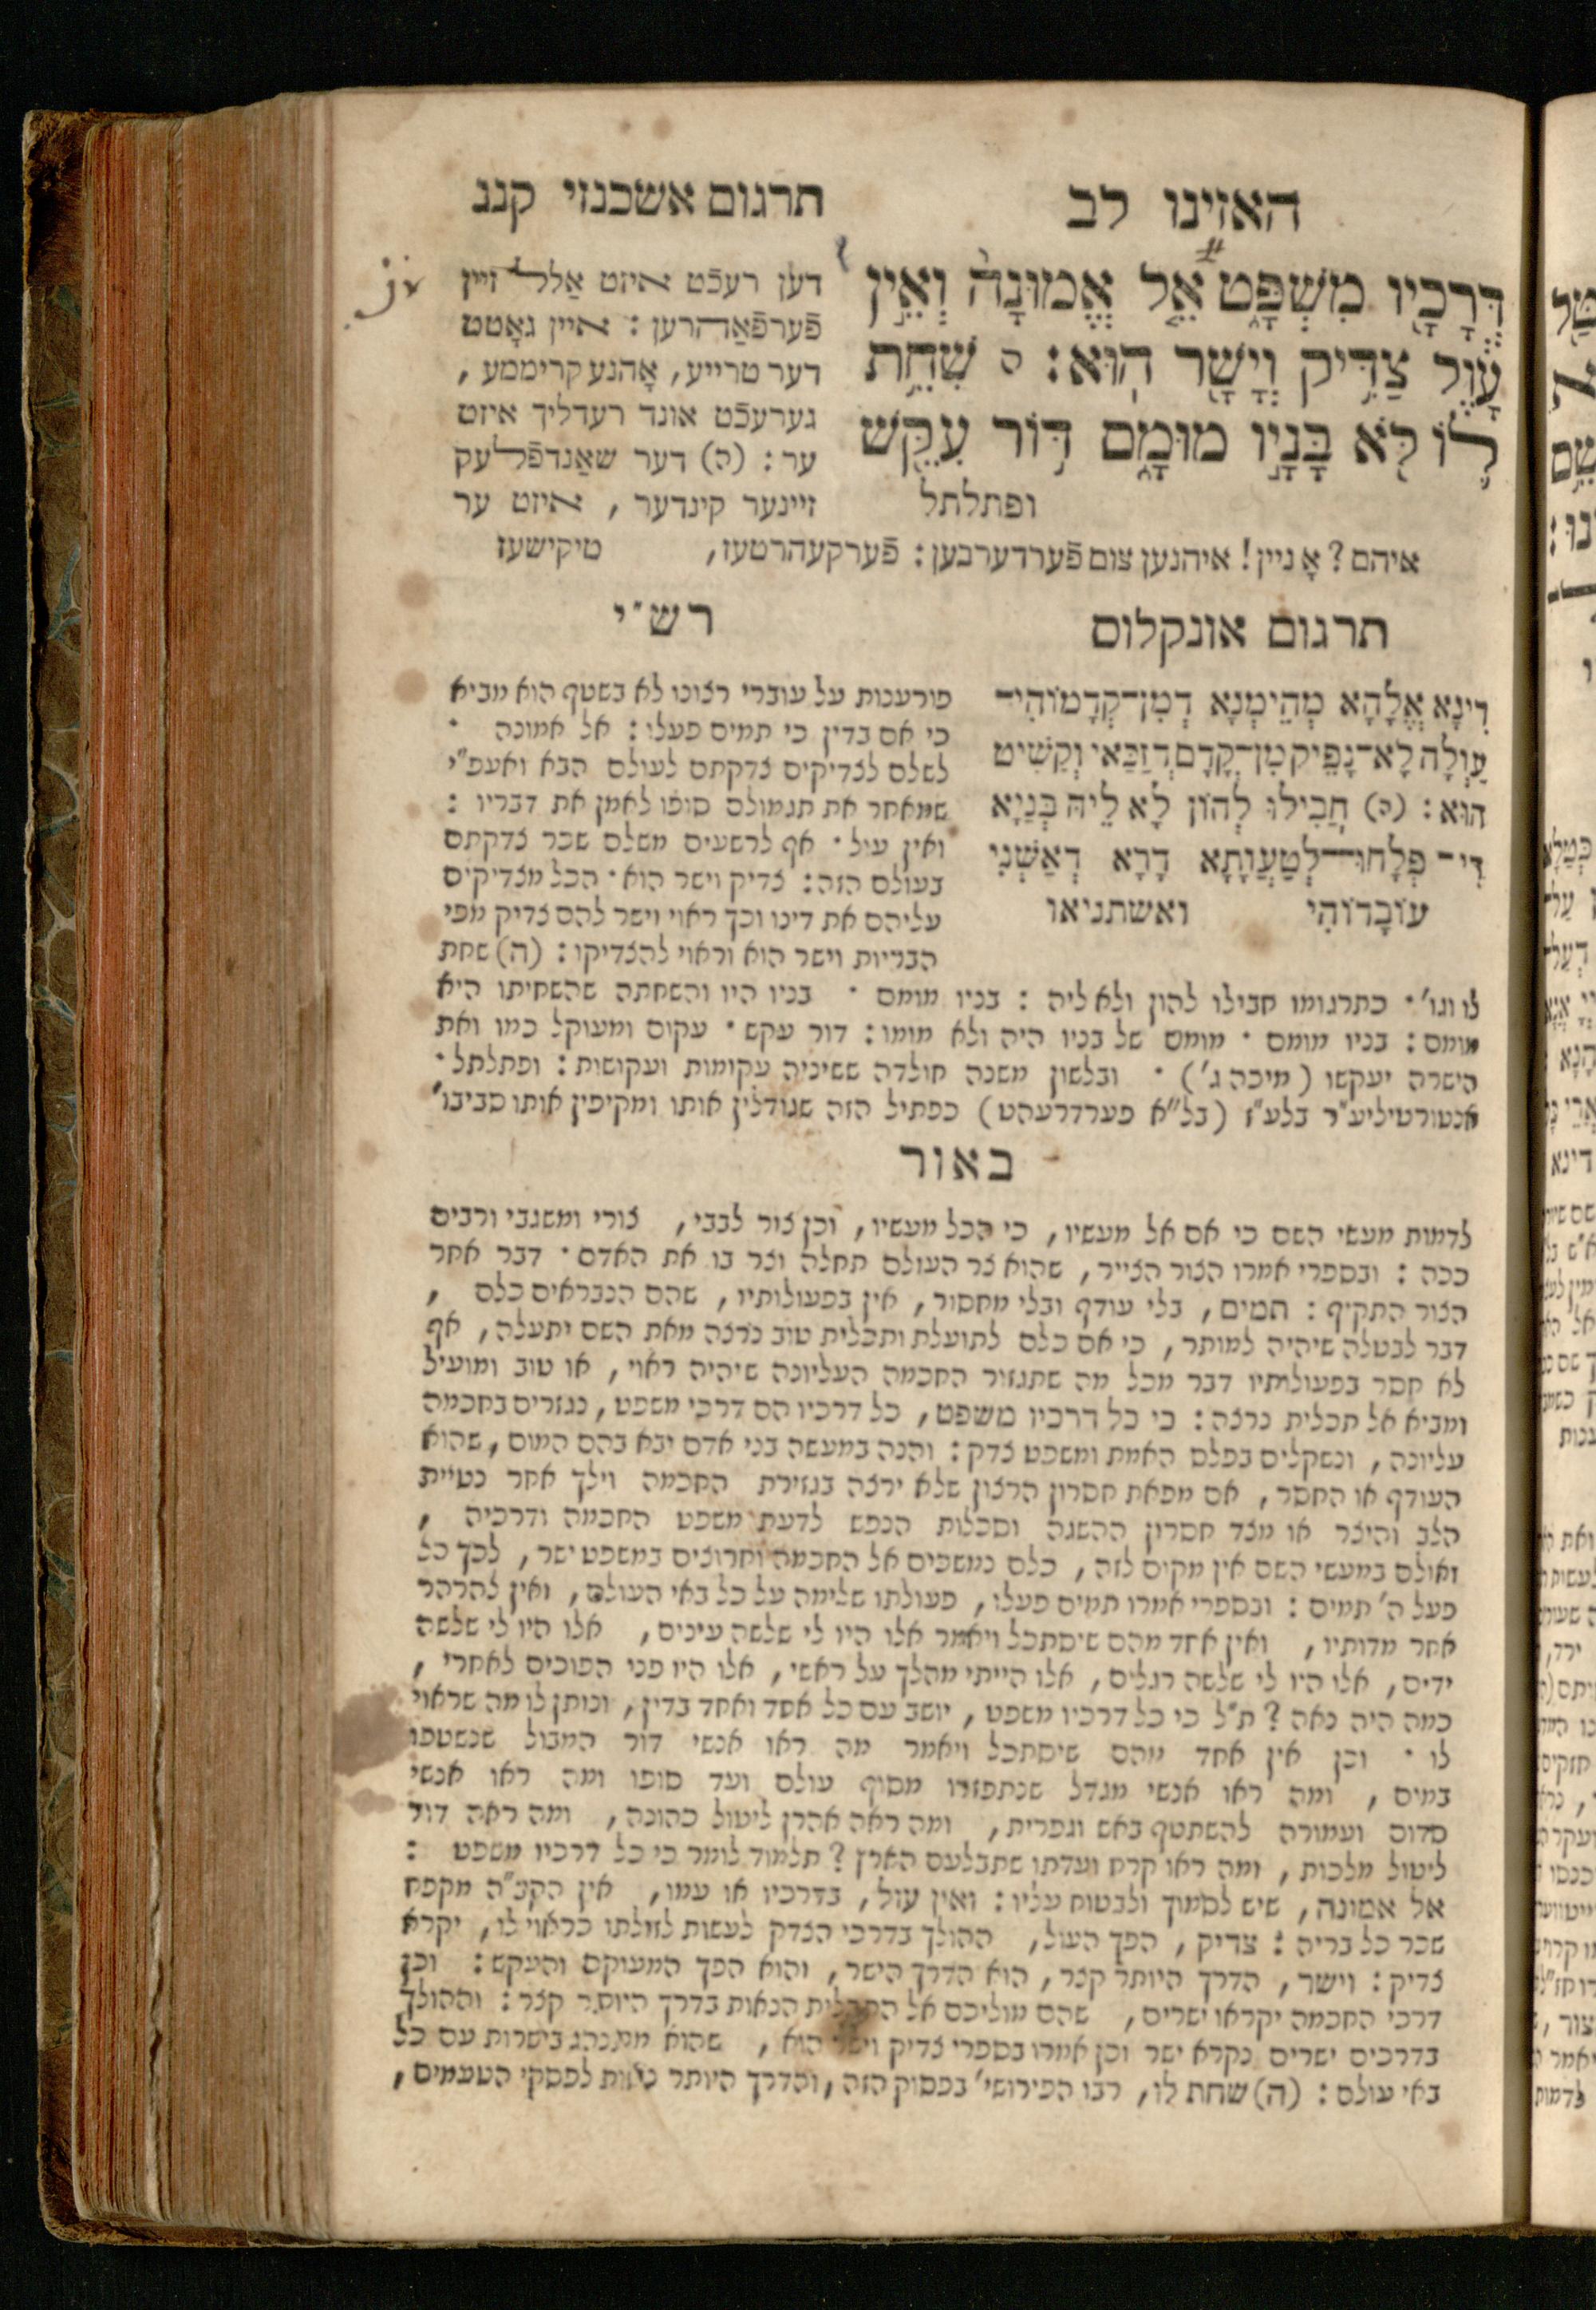 האזינו לב
תרגום אשכנזי קנג
דְּרָכָ֖יו מִשְׁפָּ֑ט אֵ֤ל אֱמוּנָה֙ וְאֵ֣ין
עָ֔וֶל צַדִּ֥יק וְיָשָׁ֖ר הֽוּא׃ ה שִׁחֵ֥ת
ל֛וֹ לֹ֖א בָּנָ֣יו מוּמָ֑ם דּ֥וֹר עִקֵּ֖שׁ
ופתלתל
דען רעכֿט איזט אַלל זיין
פֿערפֿאַהרען : איין גאָטט
דער טרייע, אָהנע קריממע,
גערעכֿט אונד רעדליך איזט
ער : (ה) דער שאַנדפֿלעק
זיינער קינדער, איזט ער
איהם? אָ ניין! איהנען צום פֿערדערבען: פֿערקעהרטעז, טיקישעז
תרגום אונקלוס
דִינָא אֱלָהָא מְהֵימְנָא דְמִן־קֳדָמוֹהִי־
עַוְלָה לָא־נָפֵיק מִן־קֳדָם דְזַכַּאי וְקַשִׁיט
הוּא: (ה) חַבִּילוּ לְהוֹן לָא לֵיהּ בְּנַיָא
דִי־ פְּלָחוּ־לְטַעֲוָתָא דָרָא דְאַשְׁנִי
עוֹבָדוֹהִי ואשתניאו
רש"י
פורענות על עוברי רצונו לא בשטף הוא מביא
כי אם בדין כי תמים פעלו: אל אמונה ·
לשלם לצדיקים צדקתם לעולם הבא ואעפ"י
שמאחר את תגמולם סופו לאמן את דבריו :
ואין עול · אף לרשעים משלם שכר צדקתם
בעולם הזה: צדיק וישר הוא · הכל מצדיקים
עליהם את דינו וכך ראוי וישר להם צדיק מפי
הבריות וישר הוא וראוי להצדיקו: (ה) שחת
לו וגו' · כתרגומו חבילו להון ולא ליה : בניו מומם · בניו היו והשחתה שהשחיתו היא
מומם: בניו מומם · מומם של בניו היה ולא מומו: דור עקש · עקום ומעוקל כמו ואת
הישרה יעקשו (מיכה ג') · ובלשון משנה חולדה ששיניה עקומות ועקושות: ופתלתל ·
אנטורטיליע"ר בלע"ז (בל"א פערדרעהט) כפתיל הזה שגודלין אותו ומקיפין אותו סביבו'
באור
לדמות מעשי השם כי אם אל מעשיו, כי הכל מעשיו, וכן צור לבבי, צורי ומשגבי ורבים
ככה : ובספרי אמרו הצור הצייר, שהוא צר העולם תחלה וצר בו את האדם · דבר אחר
הצור התקיף : תמים, בלי עודף ובלי מחסור, אין בפעולותיו, שהם הנבראים כלם,
דבר לבטלה שיהיה למותר, כי אם כלם לתועלת ותכלית טוב נרצה מאת השם יתעלה, אף
לא חסר בפעולותיו דבר מכל מה שתגזור החכמה העליונה שיהיה ראוי, או טוב ומועיל
ומביא אל תכלית נרצה: כי כל דרכיו משפט, כל דרכיו הם דרכי משפט, נגזרים בחכמה
עליונה, ונשקלים בפלס האמת ומשפט צדק: והנה במעשה בני אדם יבא בהם המום, שהוא
העודף או החסר, אם מפאת חסרון הרצון שלא ירצה בגזירת החכמה וילך אחר נטיית
הלב והיצר או מצד חסרון ההשגה וסכלות הנפש לדעת משפט החכמה ודרכיה,
ואולם במעשי השם אין מקום לזה, כלם נמשכים אל החכמה וחרוצים במשפט ישר, לכך כל
פעל ה' תמים : ובספרי אמרו תמים פעלו, פעולתו שלימה על כל באי העולם, ואין להרהר
אחר מדותיו, ואין אחד מהם שיסתכל ויאמר אלו היו לי שלשה עינים, אלו היו לי שלשה
ידים, אלו היו לי שלשה רגלים, אלו הייתי מהלך על ראשי, אלו היו פני הפוכים לאחרי,
כמה היה נאה? ת"ל כי כל דרכיו משפט, יושב עם כל אחד ואחד בדין, ונותן לו מה שראוי
לו · וכן אין אחד מהם שיסתכל ויאמר מה ראו אנשי דור המבול שנשטפו
במים, ומה ראו אנשי מגדל שנתפזרו מסוף עולם ועד סופו ומה ראו אנשי
סדום ועמורה להשתטף באש וגפרית, ומה ראה אהרן ליטול כהונה, ומה ראה דוד
ליטול מלכות, ומה ראו קרח ועדתו שתבלעם הארץ? תלמוד לומר כי כל דרכיו משפט :
אל אמונה, שיש לסמוך ולבטוח עליו: ואין עול, בדרכיו או עמו, אין הקב"ה מקפח
שכר כל בריה : צדיק, הפך העול, ההולך בדרכי הצדק לעשות לזולתו כראוי לו, יקרא
צדיק: וישר, הדרך היותר קצר, הוא הדרך הישר, והוא הפך המעוקם והעקש : וכן
דרכי החכמה יקראו ישרים, שהם מוליכים אל התכלית הנאות בדרך היותר קצר: וההולך
בדרכים ישרים נקרא ישר וכן אמרו בספרי צדיק וישר הוא, שהוא מתנהג בישרות עם כל
באי עולם : (ה) שחת לו, רבו הפירושי' בפסוק הזה, והדרך היותר נאות לפסקי הטעמים,